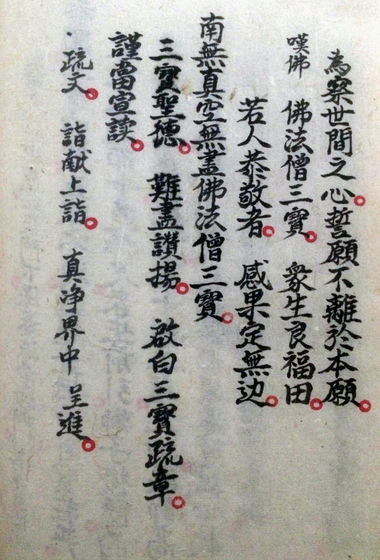 為察世間之心。誓願不離於本願。
嘆佛 佛法僧三寶。衆生良福田。
若人恭敬者。感果定無边。
南無真空無盡佛法僧三寶。
三寶聖德。難盡讃揚。啟白三寶疏章。
謹當宣读。
·疏文。詣献上詣。真淨界中呈進。